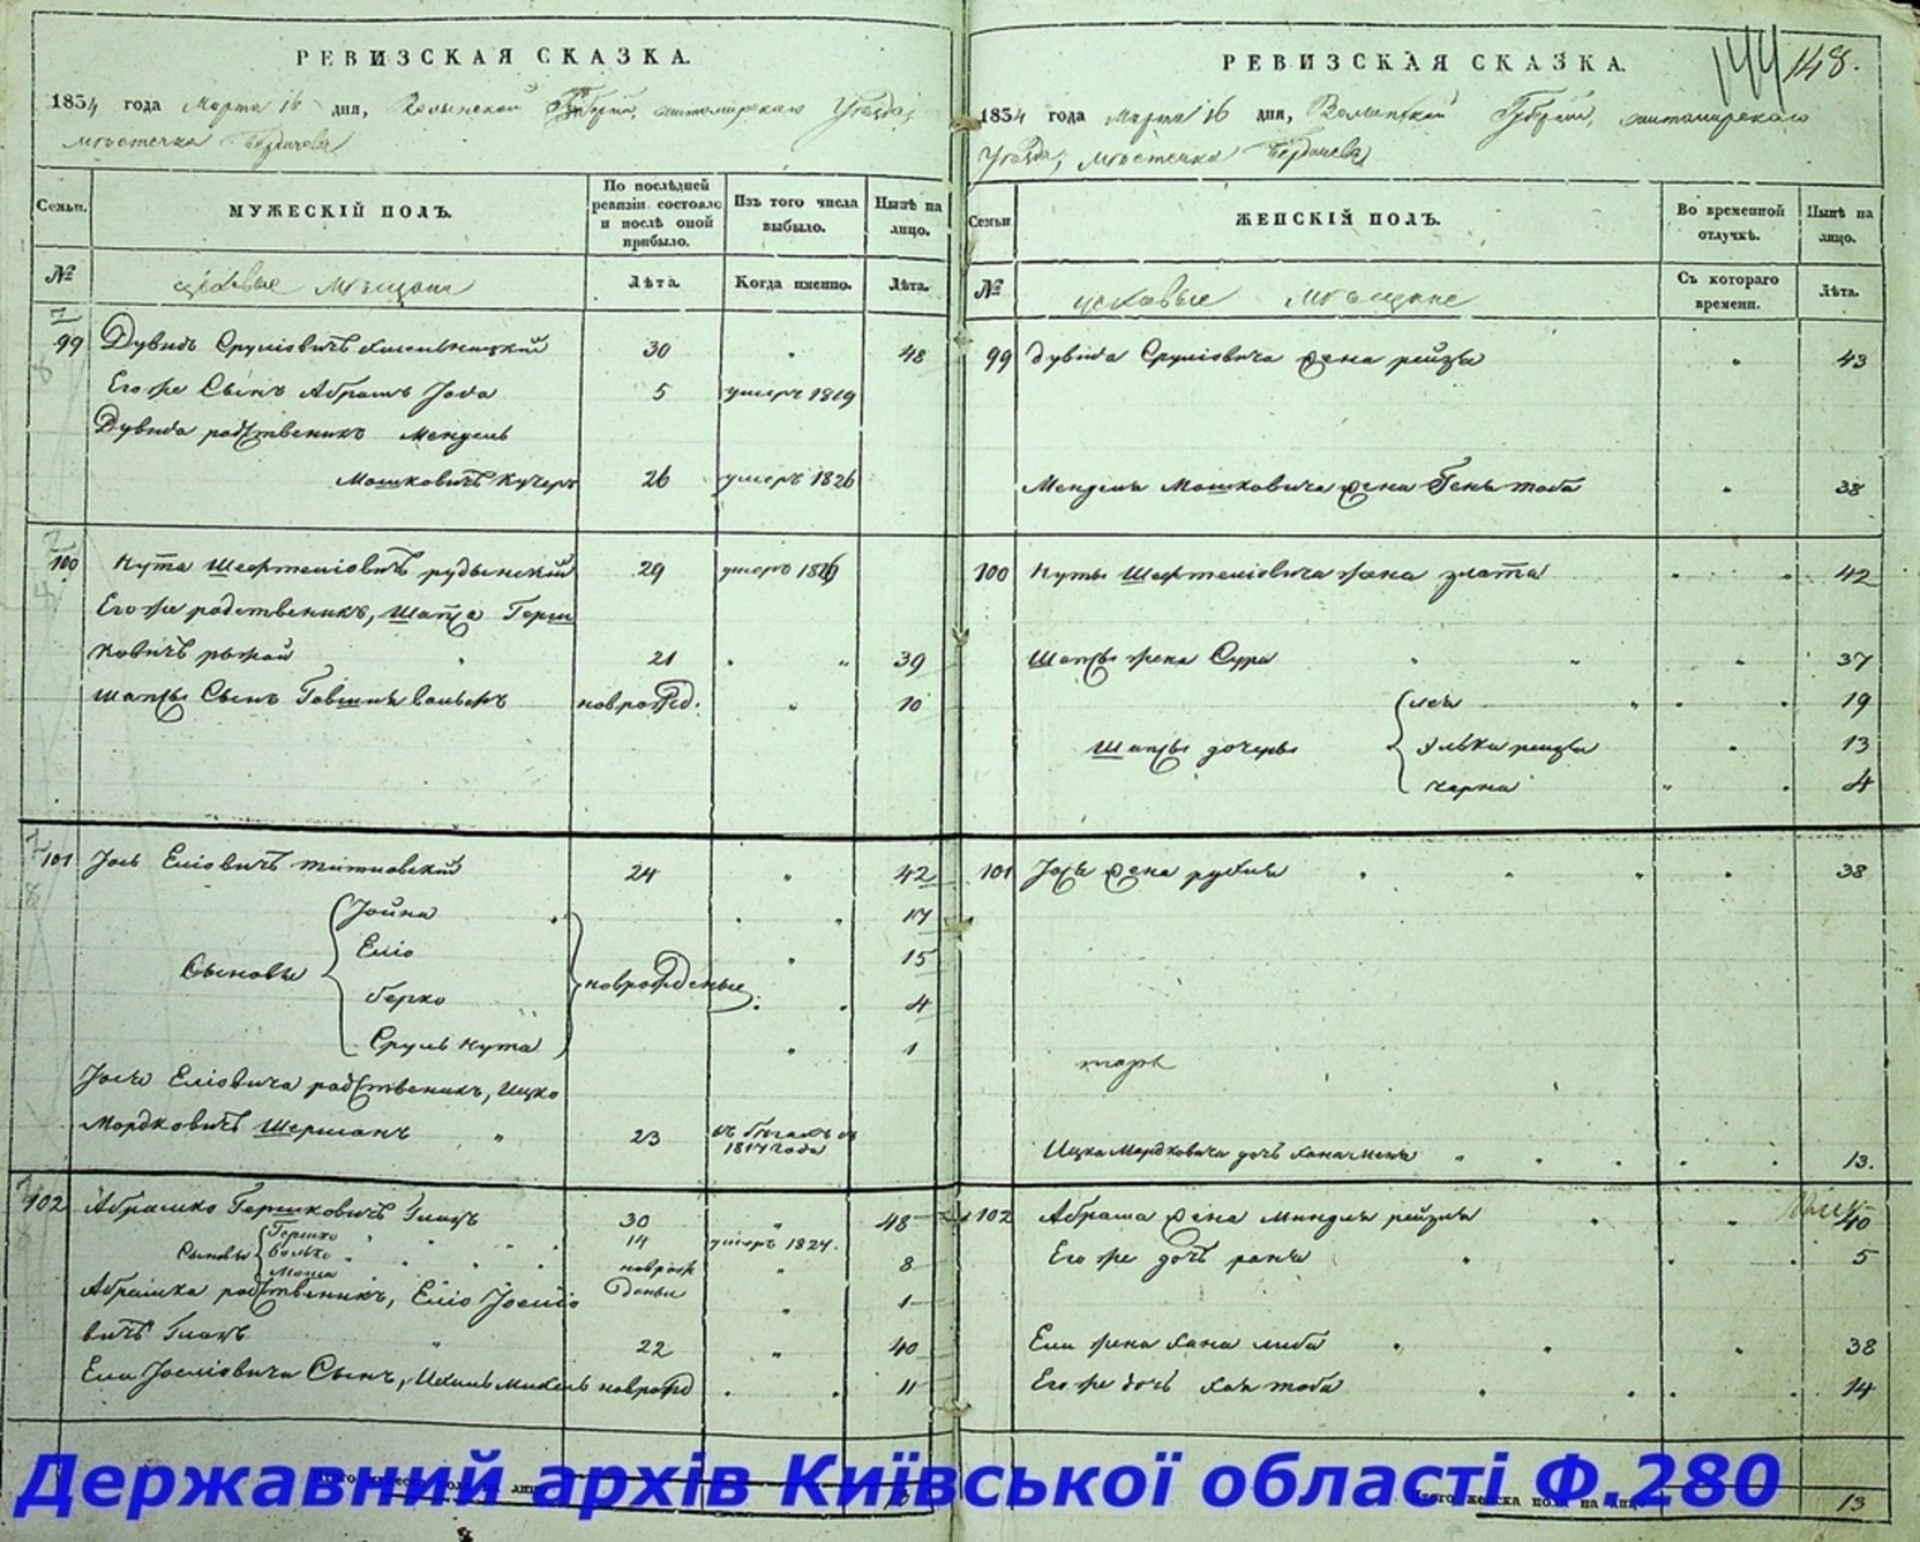 РЕВИЗСКАЯ СКАЗКА.
1834 года Марта 16 дня, Волынской Губернии, Житомирского Уезда,
местечка Бердичева
Семьи. МУЖЕСКІЙ ПОЛЪ. По послѣдней ревизіи состояло и послѣ оной прибыло. Изъ того числа выбыло. Нынѣ на лицо.
№ цеховые мещане Лѣта. Когда именно. Лѣта.
99 Дувидъ Сруліовичъ Хмельницкий 30 48
Его же Сынъ Абрамъ 5 умеръ 1819
Дувида родственникъ Мендель
Мошковичъ Кучеръ 26 умеръ 1826
100 Нута Шефтеліовичъ 29 умеръ
Его же родственникъ, Шапса Герш
ковичъ рыжой 21 39
Шапсы Сынъ новрожд. 10
101 Іось Еліовичъ 24 42
Іойна 17
Еліо 15
Сыновья новрожденые
Берко 4
Сруль Нута 1
Іося Еліовича родственикъ, Ицко
Мордковичъ Шерманъ 23 въ бегахъ съ
1817 года
102 Абрамко Гершковичъ 30 48
Гершко 14 умеръ 1824.
Сыновья Волько новрож 8
Моша деные 1
Абрамка родственикъ, Еліо Іосиліо
вичъ 22 40
Ели Іосиліовича Сынъ, новрожд 11
РЕВИЗСКАЯ СКАЗКА.
144 148.
1834 года Марта 16 дня, Волынской Губернии, Житомирского
Уезда, местечка Бердичева
Семьи ЖЕНСКІЙ ПОЛЪ. Во временной отлучкѣ. Нынѣ на лицо.
№ цеховые мещане Съ котораго времени. Лѣта.
99 Дувида Сруліовича жена рейзя 43
Менделя Мошковича жена 38
100 Нуты Шефтеліовича жена злата 42
Шапсы жена Сура 37
лея 19
Шапсы дочеры Элька рейзя 13
Черна 4
101 Іося жена рухля 38
Ицка Мордковича дочъ 13.
102 Абрама жена Миндля рейзля 40
Его же дочъ 5
Ели жена Хана либа 38
Его же дочъ Хая тоба 14
Итого женска пола на лицо 13
Державний архів Київської області Ф.280